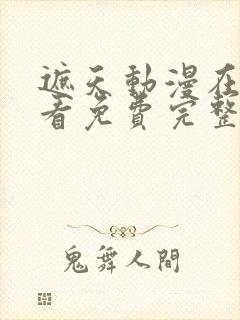 遮天動漫在
看免費完整
鬼舞人間